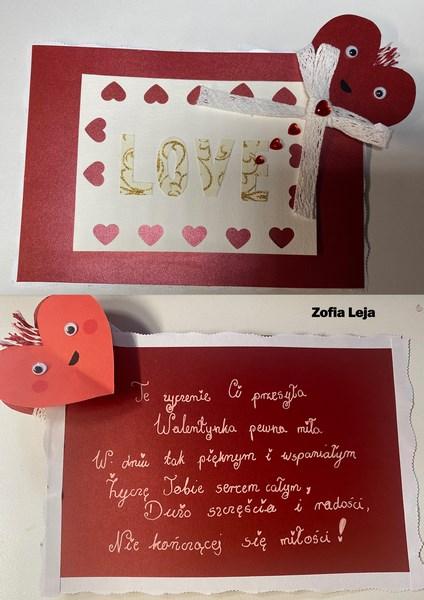 LOVE
Zofia Leja
Te życzenie Ci przesyła
Walentynka pewna miła
W dniu tak pięknym i wspaniałym
Życzę Tobie sercem całym,
Dużo szczęścia i radości,
Nie kończącej się miłości!